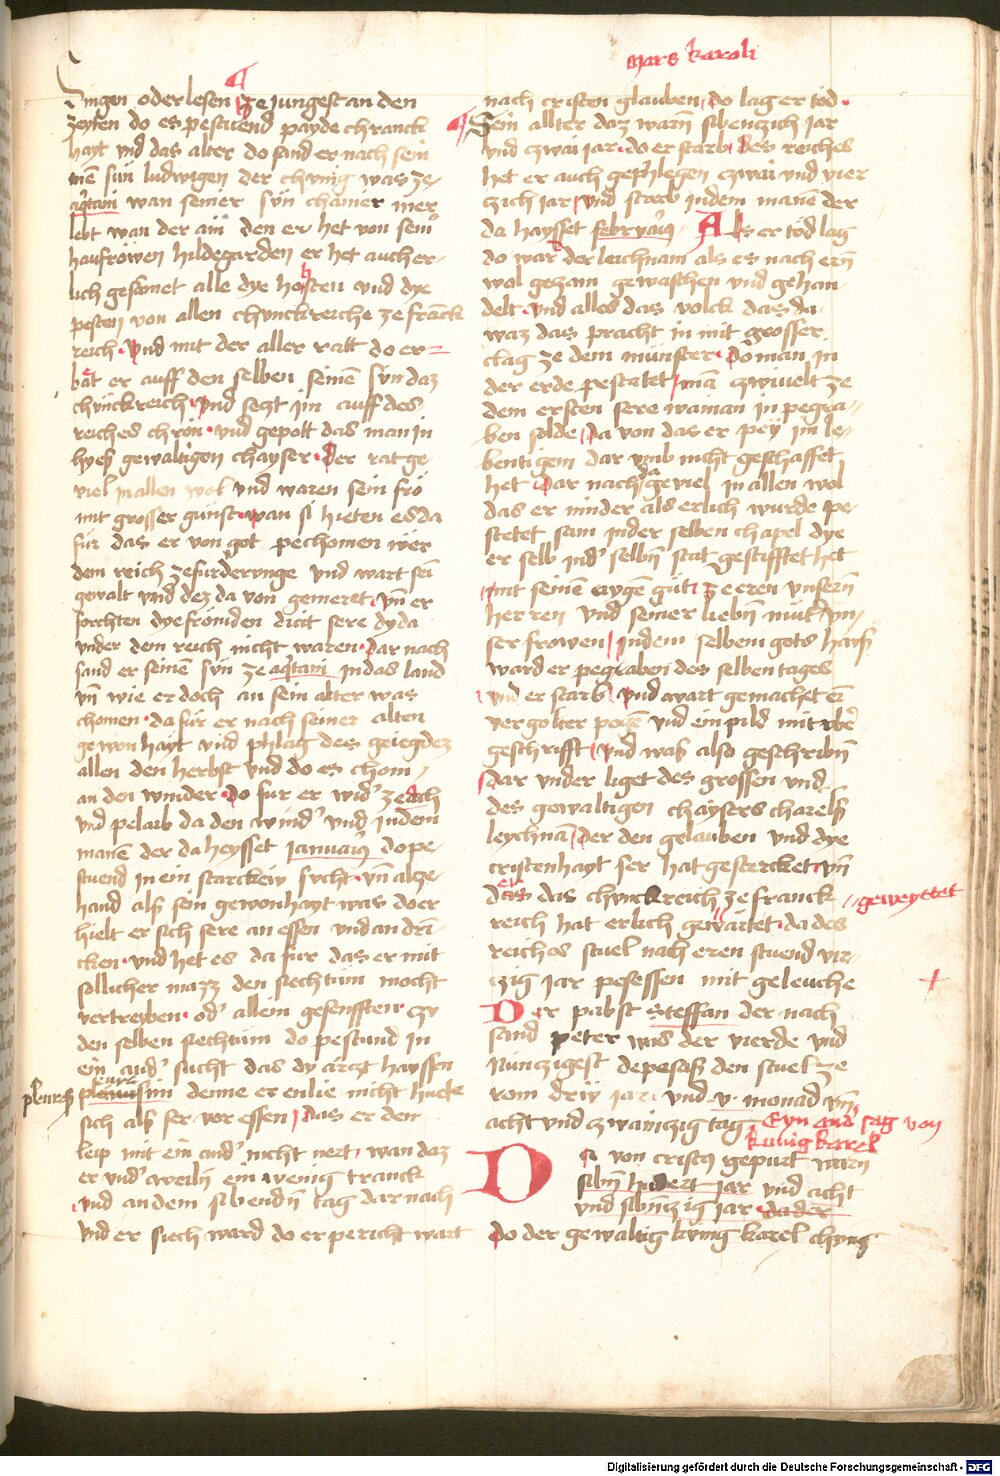 Mors karoli
singen oder lesen ze jungest an den
zeyten do es pestuend payde chranck
hayt vnd das alter do sand er nach sein
nem sün ludwigen der chunig was ze
aq̈tani wan seiner sün chainer mer
lebt wan der ain den er het von sein̄
hausfrowen hildegarden er het auch er-
lich gesamet alle dye hosten vnd dye
pesten von allen chunckreiche ze franck
reich. vnd mit der aller ratt do er=
bat er auff den selben seinē sün daz
chünckreich. vnd seczt jm auff des
reiches chron. vnd gepott das man in
hyeß gewaltigen chayser. der rat ge
viel in allen wol vnd waren sein fro
mit grosser gunst. wan si hieten es da
für das er von got pechomen wer
dem reich ze furderunge vnd wart sein
gewalt vnd dez da von gemeret. vn̄ er
forchten dye frömden dicit sere dy da
vnder dem reich nicht waren. dar nach
sand er seinē sün ze aq̈tani in das land
vn̄ wie er doch an sein alter was
chomen. da fur er nach seiner alten
gewonhayt vnd phlag des geiegdez
allen den herbst vnd do es chom
an den winder. do fur er wid' ze ach
vnd pelaib da den wind' vnd jndem
manē der da heysset januariꝰ do pe-
stuend in ein starckew sucht. vn̄ alze-
hand als sein gewonhayt was do er
hielt er sich sere an essen vnd an drī
cken. vnd het es da fur das er mit
sollicher mazz den siechtum mocht
vertreyben. od' allein gesenfften. czu
den selben siechtum do pestund in
ein and' sucht das dy arczt hayssen
pleuresim denne er enlie nicht huete
pleures
sich als ser vor essen, das er den
leip mit ein and' nicht nert, wan daz
er vnd' weiln ein wenig tranck
vnd an dem sibendn̄ tag dar nach
vnd er siech ward do er pericht wart
nach cristen glauben, do lag er tod.
Sein allter daz warn̄ sibenczich jar
vnd czwai jar. do er starb des reiches
het er auch gephlegen czwai vnd vier
czich jar, vnd starb jndem manē der
da haysset februariꝰ. Als er tod lag
do war der leichnam als es nach ern̄
wol gezam gewaschen vnd gehan-
delt. vnd alles das volck das da
waz das pracht in mit grosser
clag ze dem münster. do man in
der erde pestatet, mā czwiuelt ze
dem ersten sere waman in pegra-
ben solde, da von das er pey im le-
bentigem dar vmb nicht geschaffet
het. dar nach geviel in allen wol
das er minder als erlich wurde pe-
stetet sam jnder selben chapel dye
er selb ind' selbn̄ stat gestifftet het
mit seinē aygē gut. ze eren vnsern̄
herren vnd seiner liebn̄ mut' vn-
ser frowen, jndem selbem gots haus
ward er pegraben des selben tages
vnd er starb. vnd wart gemachet ein
vergolter pogē vnd ein pild mit vber
geschrifft, vnd was also geschribn̄
dar vnder liget des grossen vnd
des gewaltigen chaysers charels
leychnā, der den gelauben vnd dye
cristenhayt ser hat gestercket. vn̄
das chunckreich ze franck
geweyttet
reich hat erlich gewartet. da des
reiches stuel nach eren stuend vir-
czig jar pesessen mit geleuche
Der pabst Steffan der nach
sand peter was der vierde vnd
Nunczigest de pesas den stuel ze
rom drew jar. vnd v. monad vn̄
acht vnd zwainczig tag. Eyn and' sag von
kunig karel
Da von cristꝰ gepurt warn
sibn̄ hundert jar vnd acht
vnd sibn̄czig jar. da der
do der gewaltig kunig karel chunig
Digitalisierung gefördert durch die Deutsche Forschungsgemeinschaft - DFG